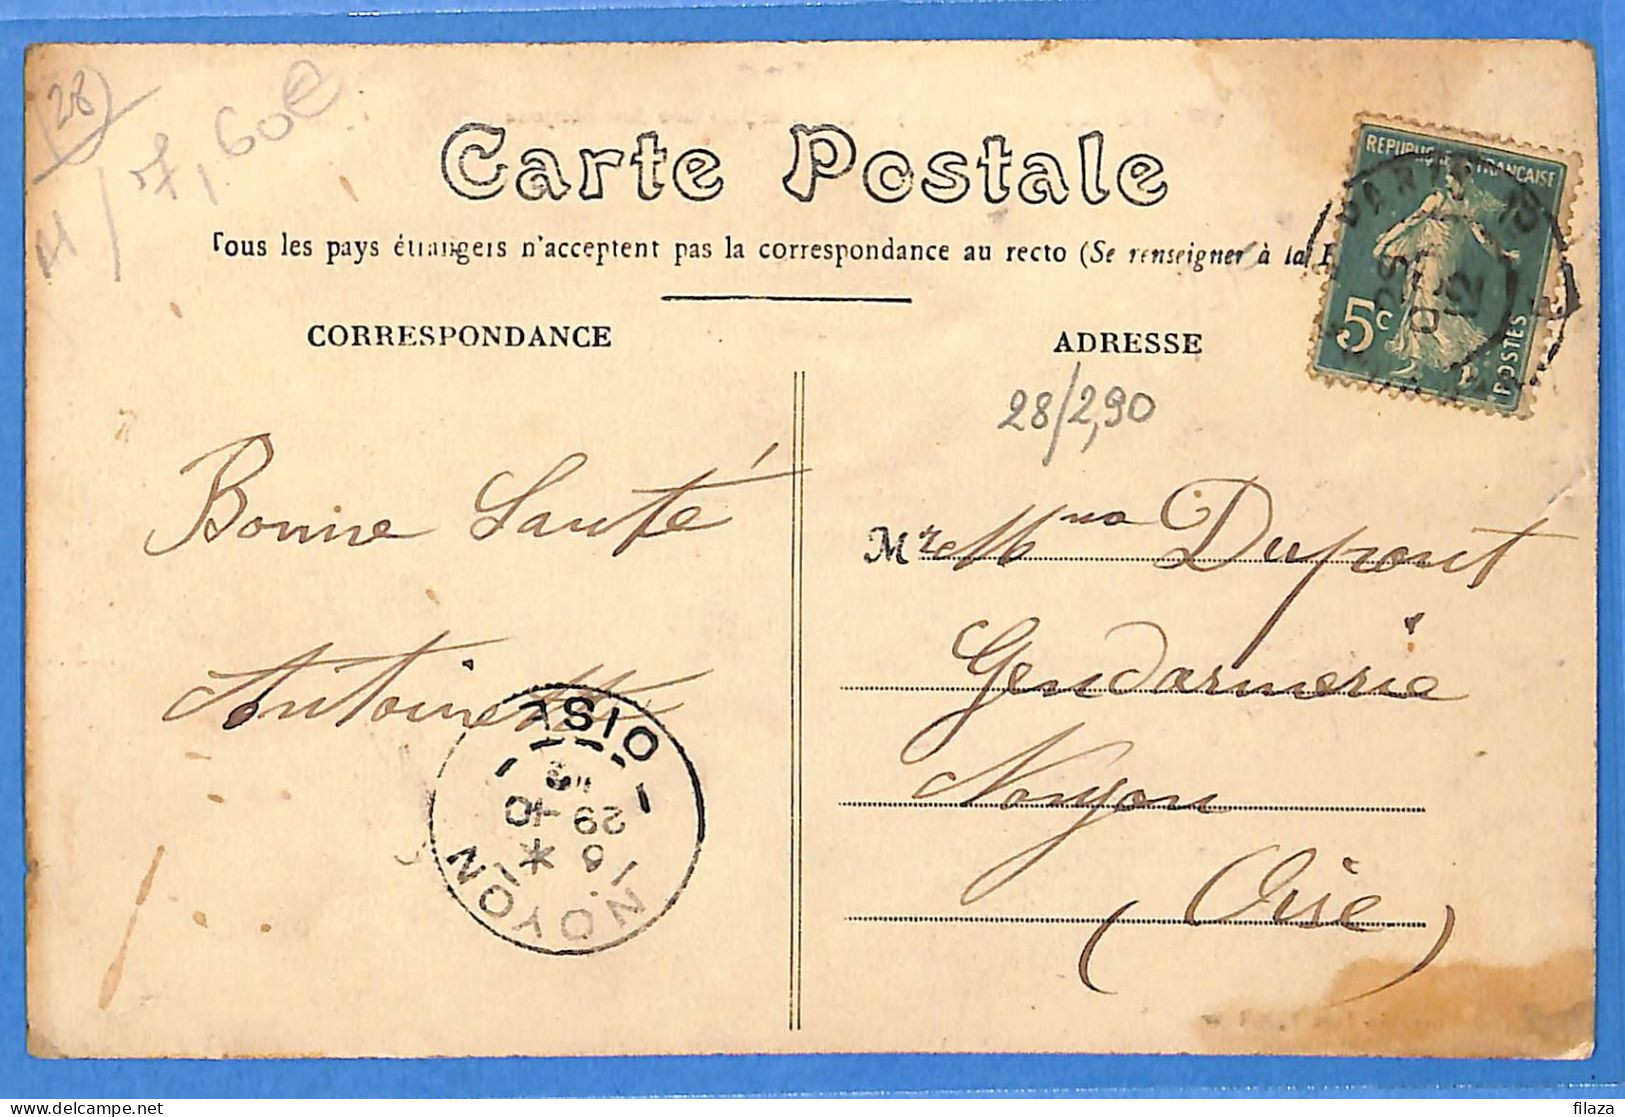 28
7,60€
Carte Postale
Tous les pays étrangers n'acceptent pas la correspondance au recto (Se renseigner à la
REPUBLIQUE FRANÇAISE
5c
POSTES
PARIS
CORRESPONDANCE
ADRESSE
28/2,90
Bonne Santé
Antoinette
Mr et Mme Dupont
Gendarmerie
Noyon
(Oise)
NOYON
OISE
29
delcampe.net
filaza